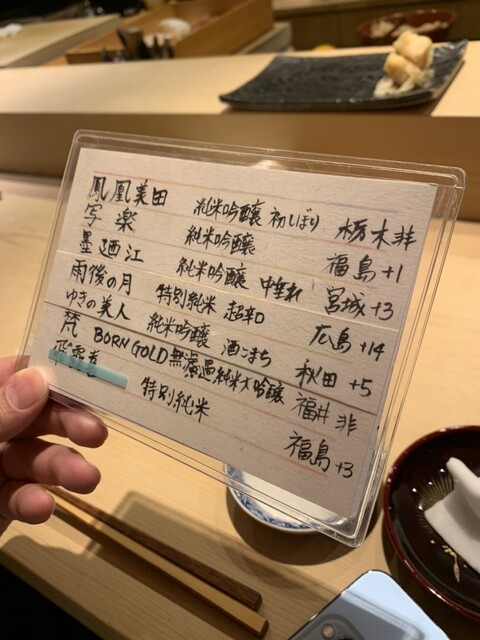 鳳凰美田 純米吟醸 初しぼり 栃木 非
写楽 純米吟醸 福島 +1
墨廼江 純米吟醸 中垂れ 宮城 +3
雨後の月 特別純米 超辛口 広島 +14
ゆきの美人 純米吟醸 酒こまち 秋田 +5
梵 BORN GOLD 無濾過純米大吟醸 福井 非
特別純米 福島 +3